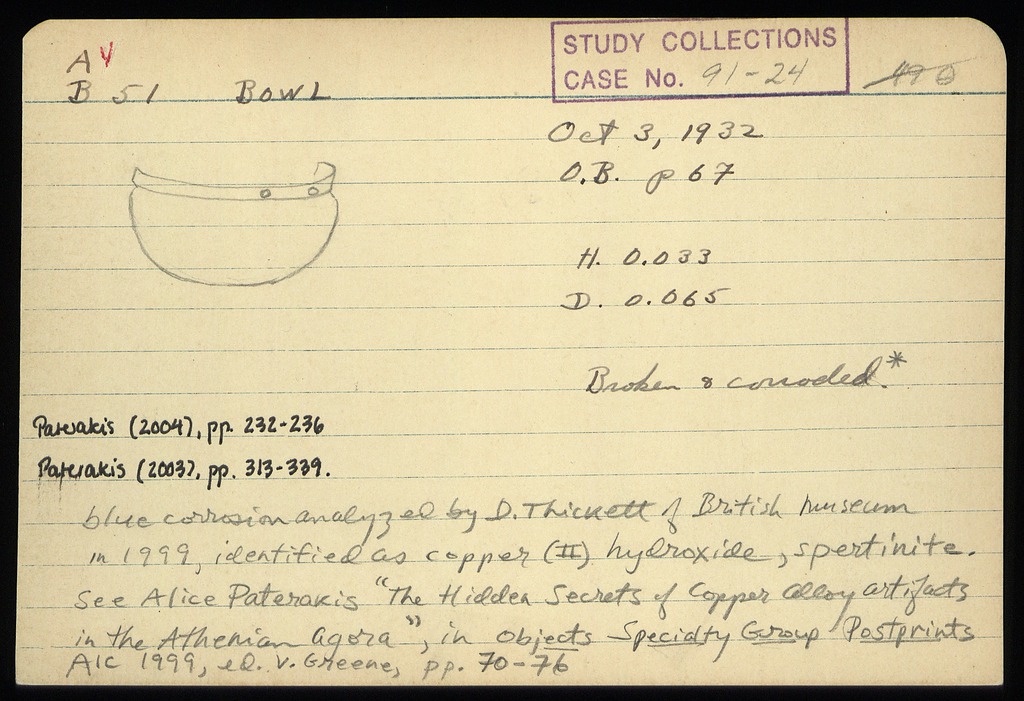 A V
B 51 BOWL
STUDY COLLECTIONS
CASE No. 91-24
Oct 3, 1932
O.B. p 67
H. 0.033
D. 0.065
Broken & corroded.*
Paterakis (2004), pp. 232-236
Paterakis (2003), pp. 313-339.
blue corrosion analyzed by D. Thickett of British Museum
in 1999, identified as copper (II) hydroxide, spertinite.
See Alice Paterakis "The Hidden Secrets of Copper Alloy artifacts
in the Athenian Agora", in Objects Specialty Group Postprints
AIC 1999, ed. V. Greene, pp. 70-76